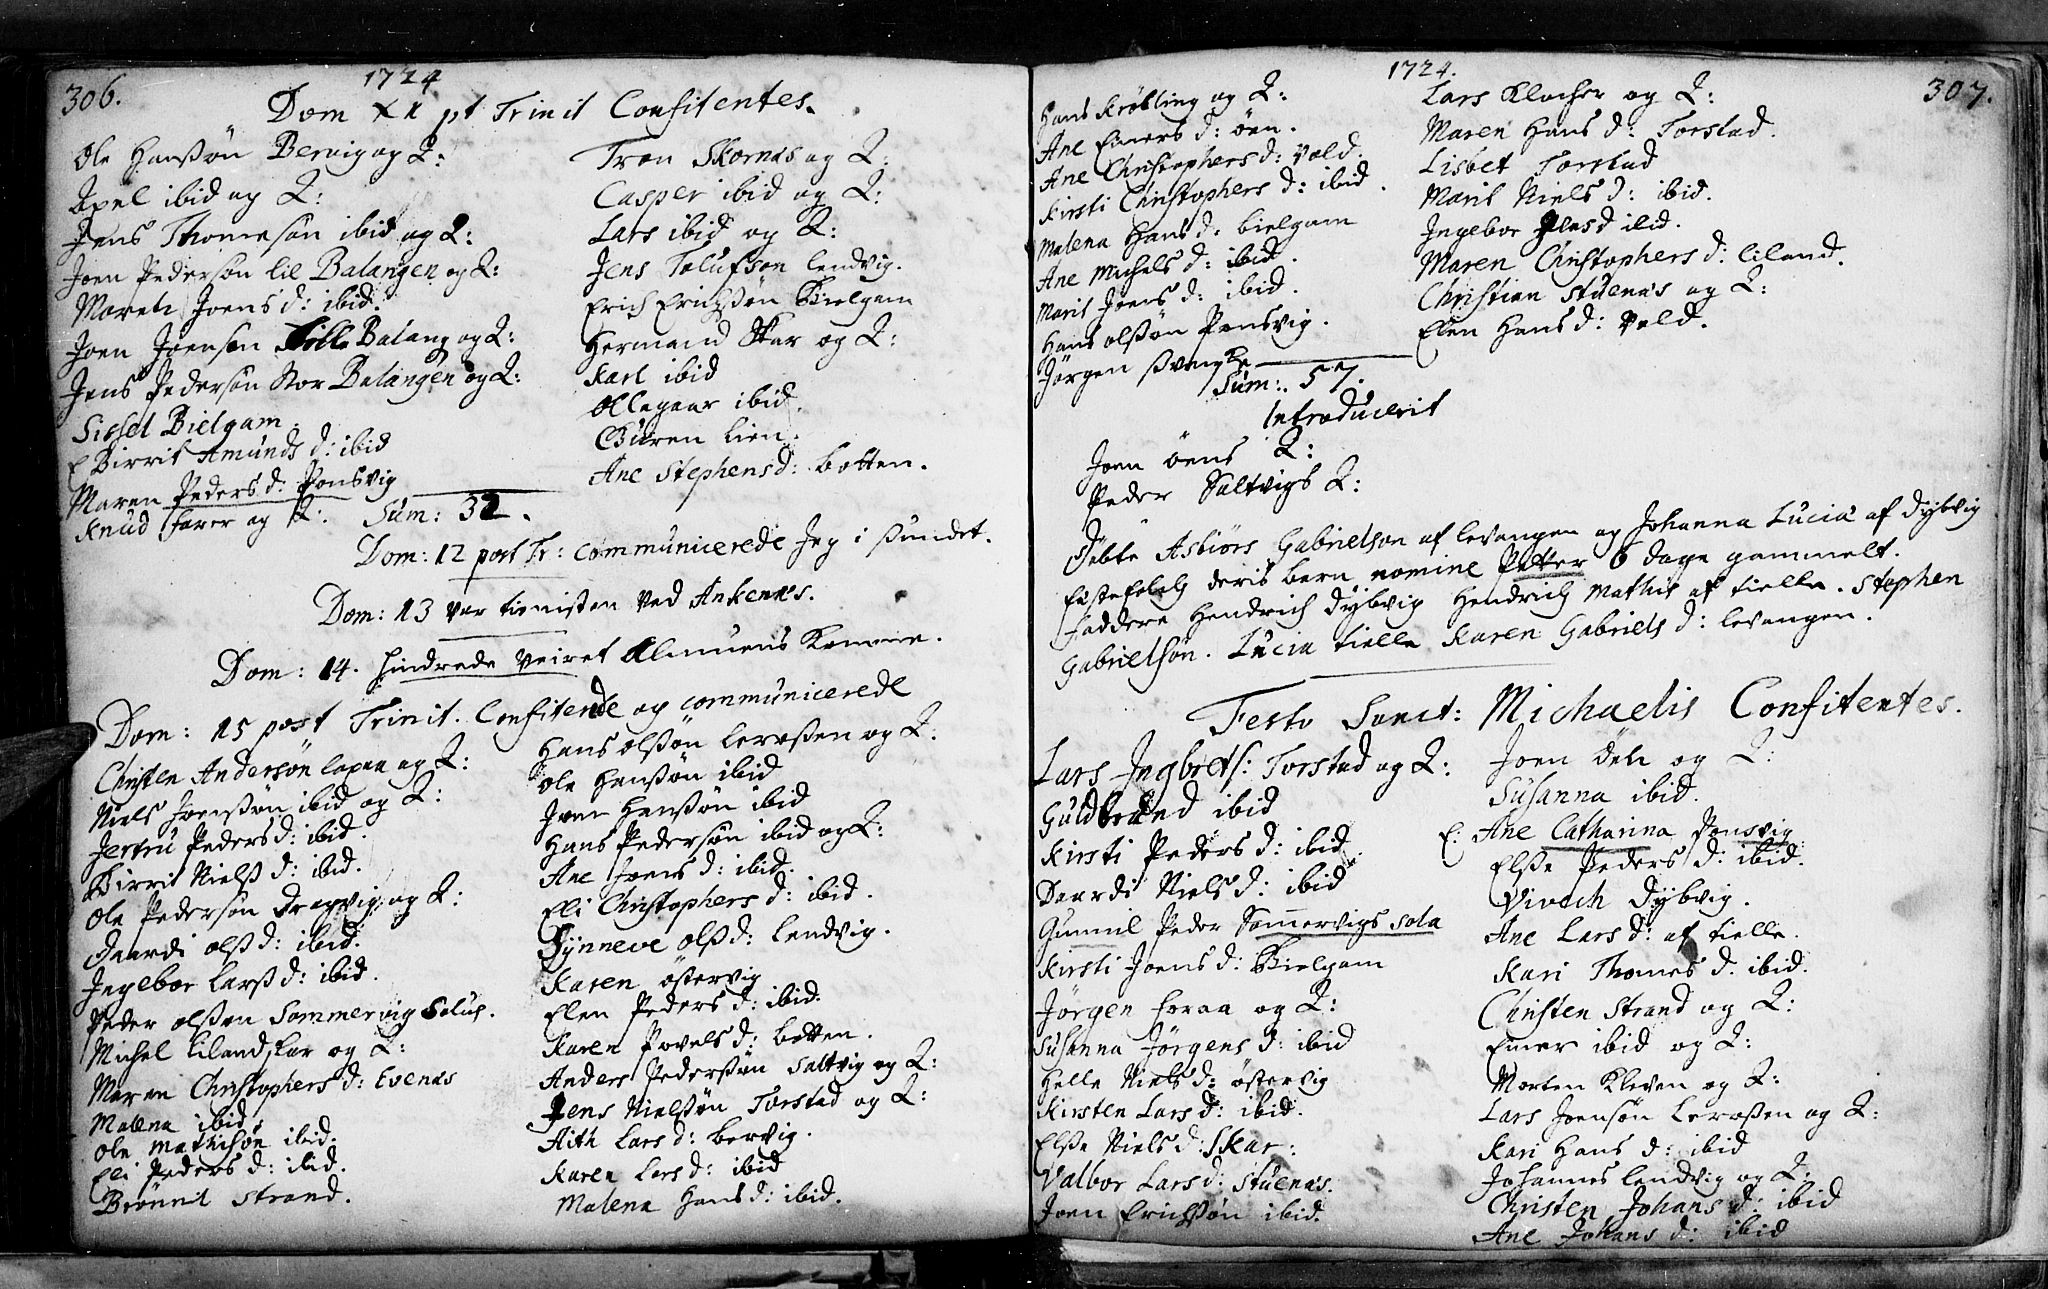 306.
1724
Dom XI pt Trinit Confitentes.
Ole Hanssøn Bervig og Q:
Axel ibid og Q:
Jens Thomesøn ibid og Q:
Joen Pedersøn lil Balangen og Q:
Maren Joens d: ibid:
Joen Joensøn Balang og Q:
Jens Pedersøn stor Balangen og Q:
Sissel Bielgam
Birrit Amunds d: ibid
Maren Peders d: Ponsvig
Knud farer og Q:
Tron Skornæs og Q:
Casper ibid og Q:
Lars ibid og Q:
Jens Tolufson lendvig.
Erich Erichssøn Bielgam
Hermand Skar og Q:
Karl ibid
Ollegaar ibid.
Guren Lien.
Ane Stephens d: botten.
Sum: 32.
Dom: 12 post Tr: communicerede Jeg i sundet.
Dom: 13 var tienisten ved Ankenæs.
Dom: 14. hindrede veiret Almuens Komme.
Dom: 15 post Trinit. Confitende og communicerede
Christen Andersøn lapaa og Q:
Niels Joenssøn ibid og Q:
Jertru Peders d: ibid.
Birrit Nielss d: ibid.
Ole Pedersøn Dragvig og Q:
Daardi olss d: ibid.
Ingebor Larss d: ibid.
Peder olssøn Sommervig Solus.
Michel Lilandskar og Q:
Maren Christophers d: Evenæs
Malena ibid.
Ole Mathisøn ibid.
Eli Peders d: ibid.
Brønnil Strand.
Hans olssøn Lerossen og Q:
Ole Hanssøn ibid
Joen Hanssøn ibid
Hans Pedersøn ibid og Q:
Ane Joens d: ibid.
Eli Christophers d: ibid.
Synneve olss d: lendvig.
Karen østervig
Elen Peders d: ibid.
Karen Povels d: botten.
Anders Pederssøn Saltvig og Q:
Jens Nielssøn Torstad og Q:
Aith Lars d: bervig.
Karen Lars d: ibid
Malena Hans d: ibid.
1724.
307.
Hans Krøbling og Q:
Ane Emers d: øen.
Ane Christophers d: Vold.
Kirsti Christophers d: ibid.
Malena Hans d: bielgam
Ane Michels d: ibid.
Marit Joens d: ibid.
Hans olssøn Ponsvig.
Jørgen
Lars Klocher og Q:
Maren Hans d: Torstad.
Lisbet Torstad
Marit Niels d: ibid.
Ingebor d ibid.
Maren Christophers d: liland.
Christian Stuenæs og Q:
Elen Hans d: Vold.
Sum: 57.
Introducerit
Joen øens Q:
Peder Saltvigs Q:
Døbte Asbiörs Gabrielsøn af levangen og Johanna Lucia af Dybvig
deris barn nomine Petter 6 dage gammelt.
faddere Hendrich Dybvig Hendrich Mathis af tielle. Stephen
Gabrielsøn. Lucia tielle Karen Gabriels d: levangen.
Festo Sanct: Michaelis Confitentes.
Lars Ingbrets: Torstad og Q:
Guldbrand ibid
Kirsti Peders d: ibid
Daardi Niels d: ibid
Gunnil Peder Somervigs sola
Kirsti Joens d: Bielgam
Jørgen foraa og Q:
Susanna Jørgens d: ibid
Helle Niels d: østervig
Kirsten Lars d: ibid.
Elsse Niels d: Skar.
Valbor Lars d: Stuenæs.
Joen Erichssøn ibid.
Joen Øen og Q:
Susanna ibid.
E: Ane Catharina Ponsvig
Elsse Peders d: ibid.
Vivech Dybvig.
Ane Lars d: af tielle.
Kari Thomes d. ibid.
Christen Strand og Q:
Emer ibid og Q:
Morten Kleven og Q:
Lars Joensøn Lerossen og Q:
Kari Hans d: ibid
Johannes lendvig og Q:
Christen Johans d: ibid
Ane Johans d: ibid